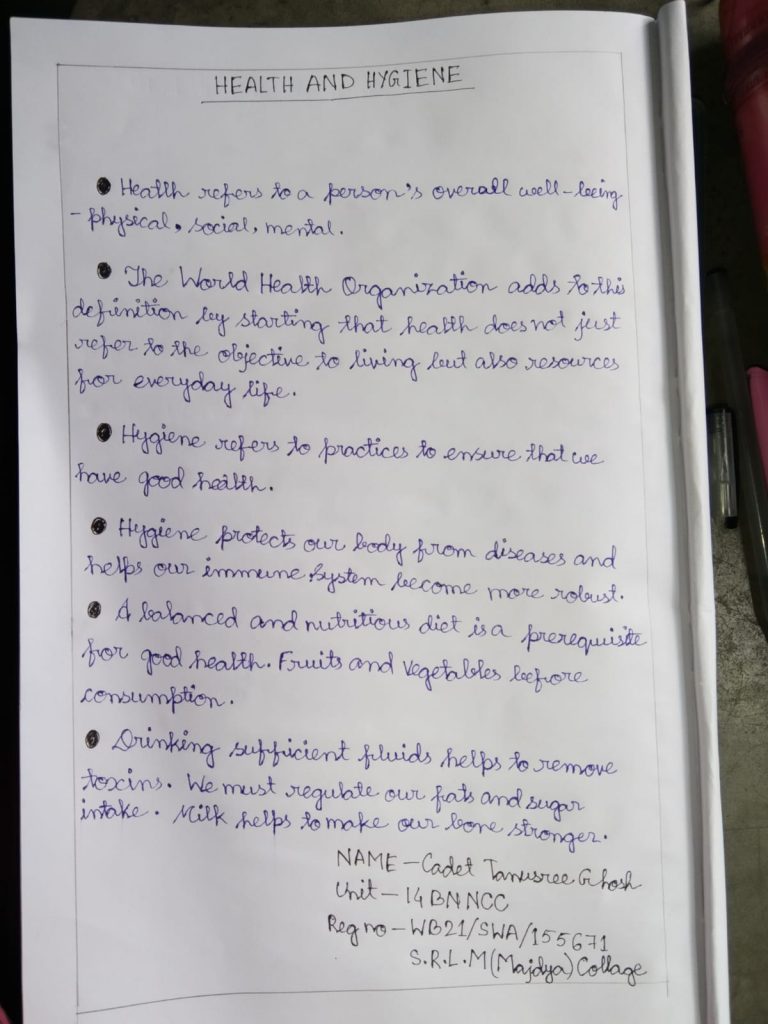 HEALTH AND HYGIENE
● Health refers to a person's overall well-being
- physical, social, mental.
● The World Health Organization adds to this
definition by starting that health does not just
refer to the objective to living but also resources
for everyday life.
● Hygiene refers to practices to ensure that we
have good health.
● Hygiene protects our body from diseases and
helps our immune system become more robust.
● A balanced and nutritious diet is a prerequisite
for good health. Fruits and vegetables before
consumption.
● Drinking sufficient fluids helps to remove
toxins. We must regulate our fats and sugar
intake. Milk helps to make our bone stronger.
NAME - Cadet Tanusree Ghosh
Unit - 14 BN NCC
Reg no - WB21/SWA/155671
S.R.L.M (Majdya) Collage